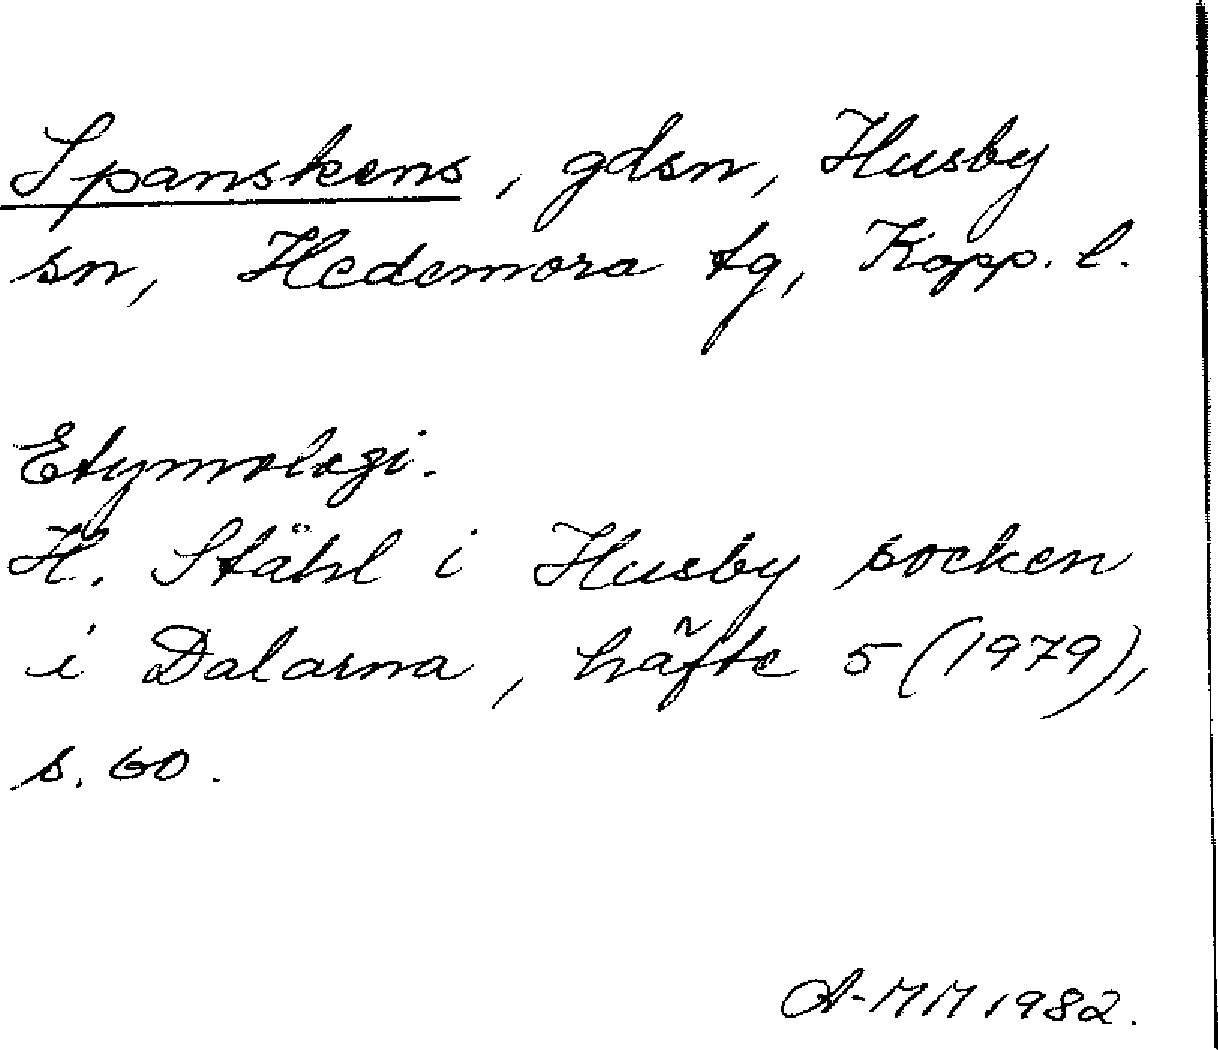 Spanskens, gdsn, Husby
sn, Hedemora tg, Kopp. l.
Etymologi.
H. Ståhl i Husby socken
i Dalarna, häfte 5 (1979),
s. 60.
A-MM 1982.